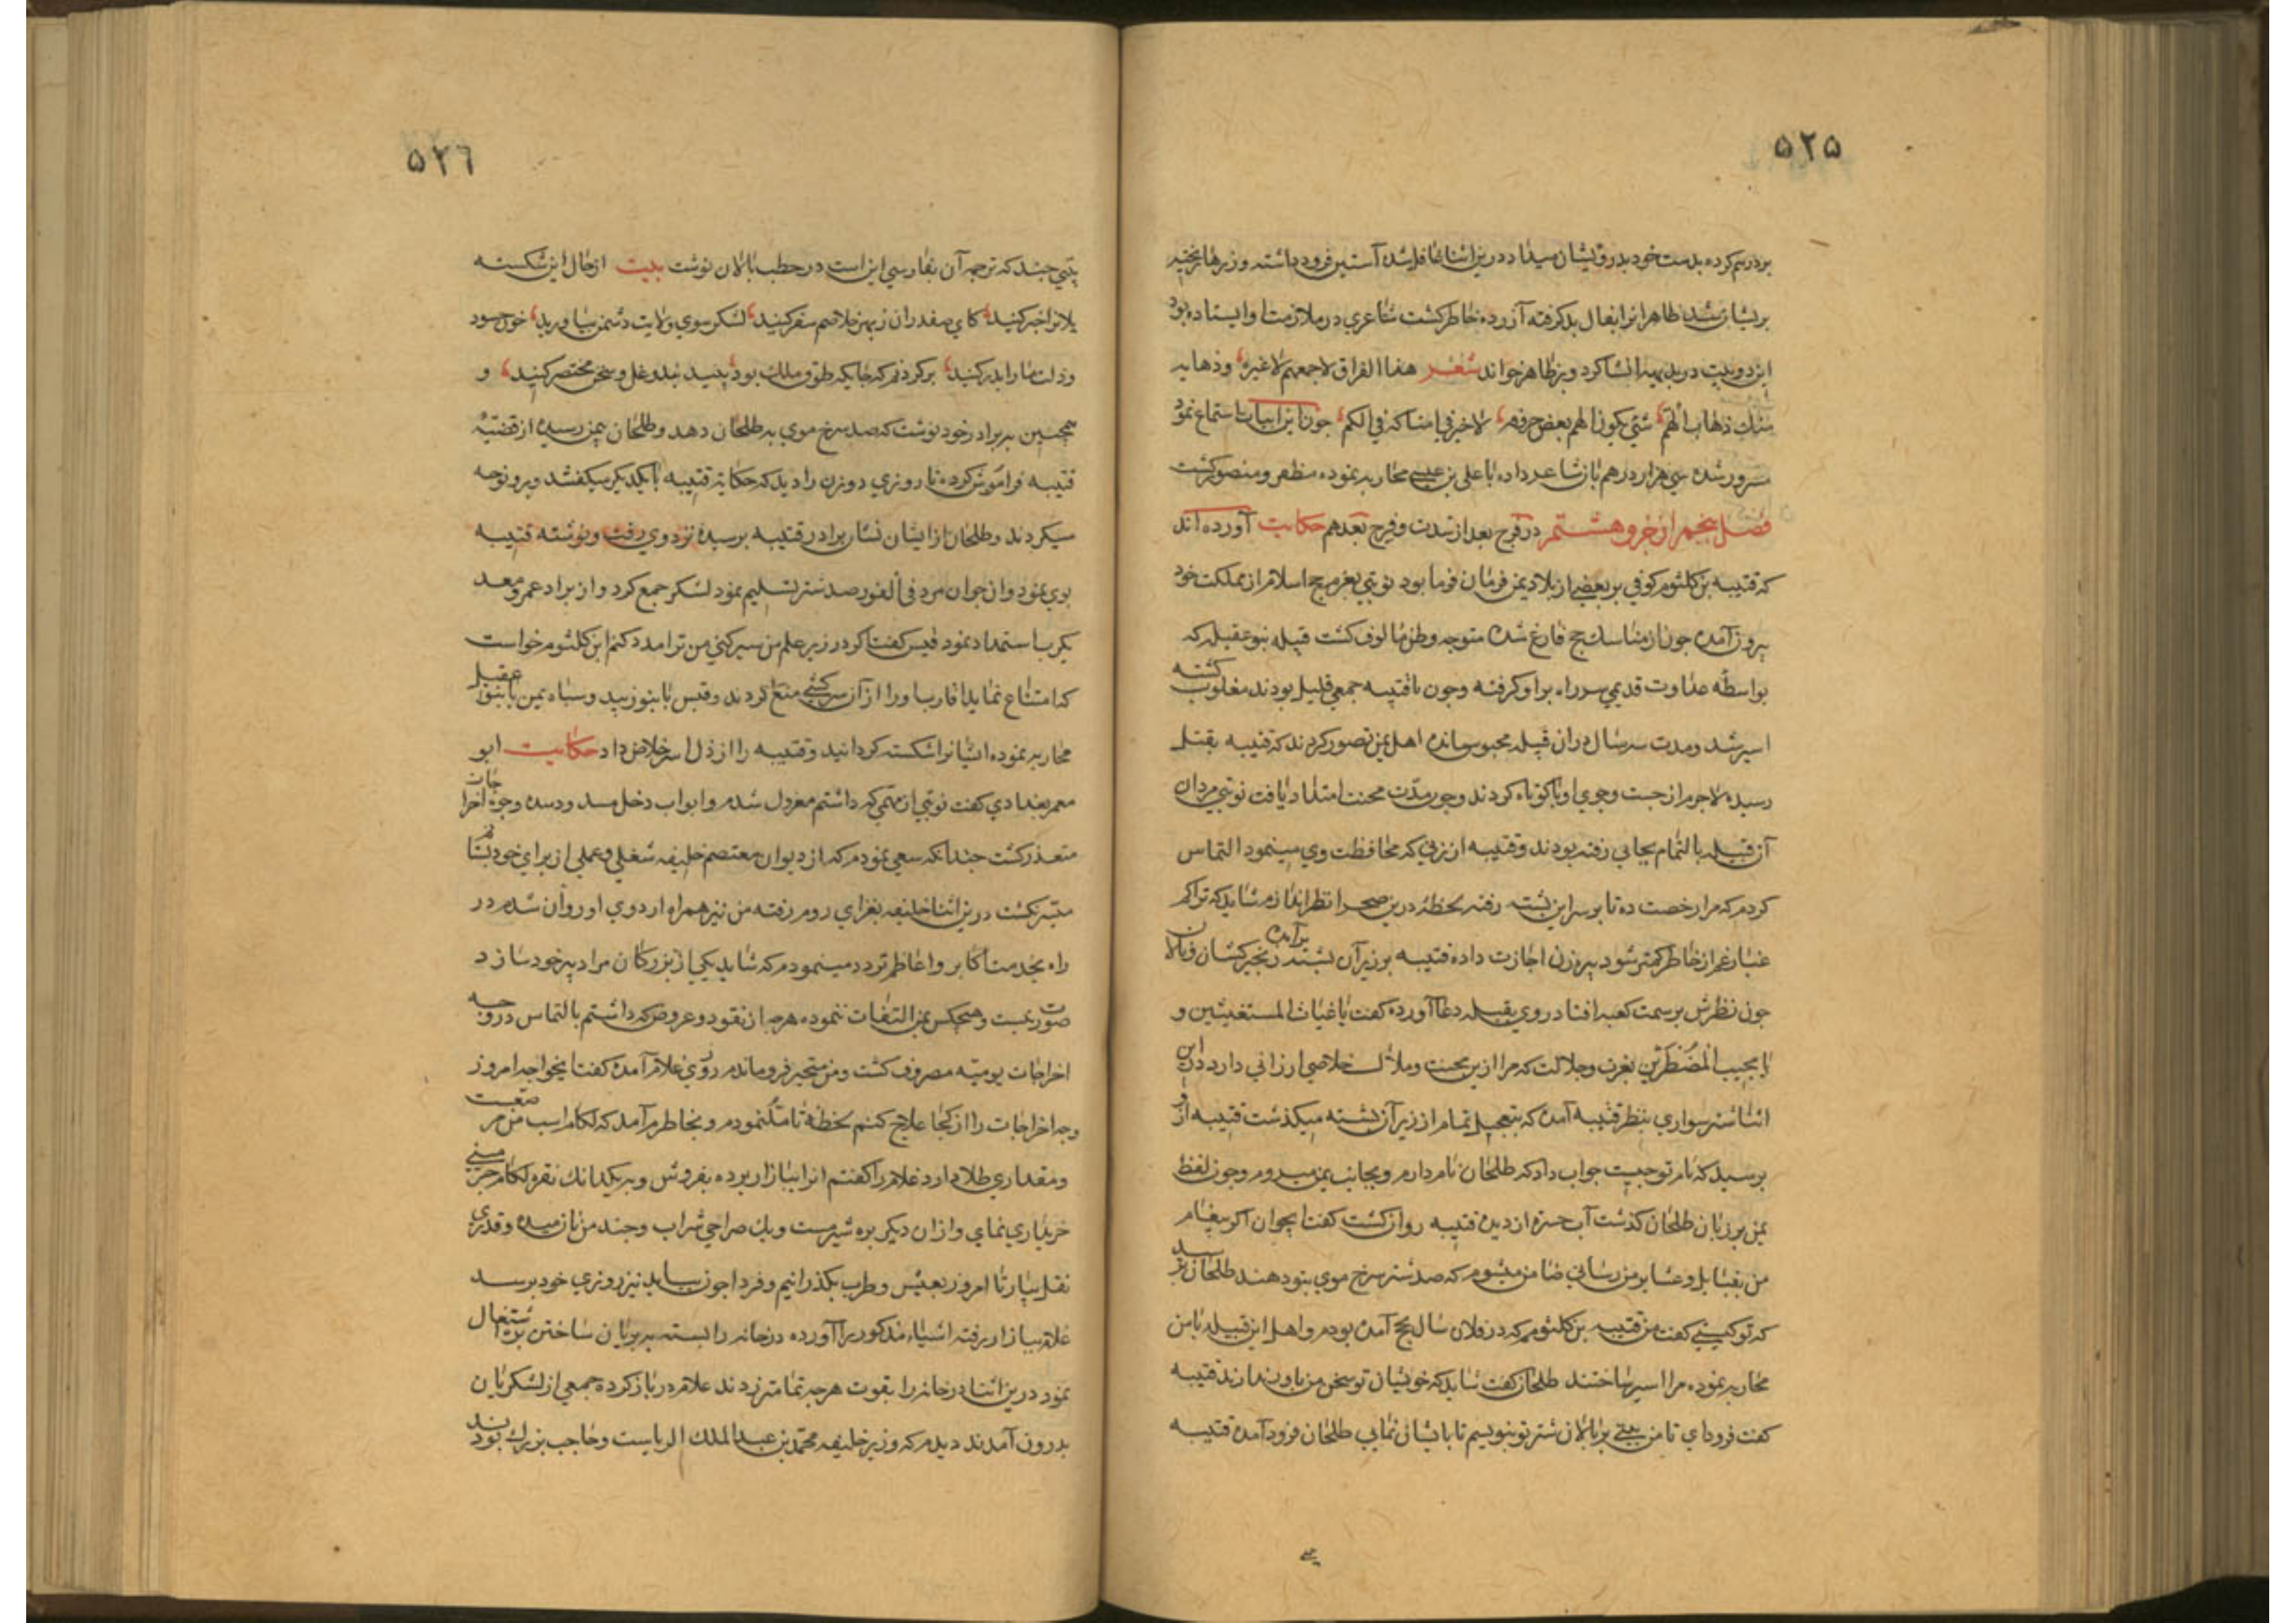 ۵۲۵
بر درهم کرده بدست خود بدرویشان میداد درین اثنا غافل شده آستین فرود داشته و زرها بریخته
پریشان شد ظاهر انرا بفال بد گرفته آزرده خاطر کشت شاعری در ملازمت او ایستاده بود
این دو بیت در بدیهه انشا کرد و بر ظاهر خواند شعر هذا الفراق لا جمعهم لا غیره وذهابه
منك ذهاب الهم شئ یکون الهم بعض حروفه لا خیر فی امساکه فی الکم جون این ابیات استماع نمود
مسرور شده سی هزار درهم بان شاعر داده با علی بن عیسی محاربه نموده مظفر و منصور کشت
فصل پنجم از جزو هشتم در فرج بعد از شدت و فرح بعد هم حکایت آورده اند
که قتیبه بن کلثوم کوفی بر بعضی از بلاد یمن فرمان فرما بود نوبتی بعزم حج اسلام از مملکت خود
بیرون آمده جون از مناسك حج فارغ شده متوجه وطن مالوف کشت قبیله بنو عقیله که
بواسطه عداوت قدیمی سر راه بر او کرفته وجون با قتیبه جمعی قلیل بودند مغلوب کشته
اسیر شد و مدت سه سال در ان قبیله محبوس مانده اهل یمن تصور کردند که قتیبه بقتل
رسیده لاجرم از جست وجوی او پا کوتاه کردند وجون مدت محنت امتداد یافت نوبتی مردان
آن قبیله بالتمام بجایی رفته بودند و قتیبه از زنی که محافظت وی مینمود التماس
کردم که مرا رخصت ده تا بر سر این پشته رفته لحظه درین صحرا نظر اندازم شاید که تراکم
غبار غم از خاطر کمتر شود پیرزن اجازت داده قتیبه بر زبر آن پشته برآمده زنجیر کشان و نالان
جون نظرش بر سمت کعبه افتاد روی بقبله دعا آورده کفت یا غیاث المستغیثین و
یا مجیب المضطرین بعزت و جلالت که مرا ازین محنت و ملالت خلاصی ارزانی دار در این
اثنا شتر سواری بنظر قتیبه آمده که بتعجیل تمام از زیر آن پشته میکذشت قتیبه از و
پرسید که نام تو جیست جواب داد که طلحان نام دارم و بجانب یمن میروم وجون لفظ
یمن بر زبان طلحان کذشت آب حسرة از دیده قتیبه روان کشت کفت ایجوان اکر پیغام
من بقبایل و عشایر من رسانی ضامن میشوم که صد شتر سرخ موی بتو دهند طلحان پرسید
که تو کیستی کفت من قتیبه بن کلثومم که در فلان سال بحج آمده بودم و اهل این قبیله با من
محاربه نموده مرا اسیر ساختند طلحان کفت شاید که خویشان تو سخن من باور ندارند قتیبه
کفت فرود ای تا من بیتی بر پالان شتر تو بنویسم تا بایشان نمایی طلحان فرود آمده قتیبه
۵۲٦
بیتی جند که ترجمه آن بفارسی این است در حطب پالان نوشت بیت از حال این شکسته
یلانرا خبر کنید کای صفدران ز بهر خلاصم سفر کنید لشکر سوی ولایت دشمن بیاورید خون حسود
وذلت ما را بدر کنید بر کردنم که جایکه طوق ملك بود بینید بند و غل و سخن مختصر کنید و
همجنین به برادر خود نوشت که صد سرخ موی به طلحان دهد و طلحان بیمن رسیده از قضیه
قتیبه فراموش کرده تا روزی دو زن را دید که حکایة قتیبه با یکدیکر میکفتند و برو نوحه
میکردند و طلحان از ایشان نشان برادر قتیبه پرسیده نزد وی رفت و نوشته قتیبه
بوی نمود و ان جوان مرد فی الفور صد شتر تسلیم نمود لشکر جمع کرد و از برادر عمرو معد
یکرب استمداد نمود قیس کفت اکر در زیر علم من سیر کنی من ترا مدد کنم ابن کلثوم خواست
که امتناع نماید اقارب او را از آن سرکشی منع کردند و قیس با بنو زبید و سپاه یمن با بنو عقیل
محاربه نموده ایشانرا شکسته کردانید و قتیبه را از ذل اسر خلاص داد حکایت ابو
معمر بغدادی کفت نوبتی از مهمی که داشتم معزول شدم و ابواب دخل مسدود شده وجوه اخراجات
متعذر کشت جندانکه سعی نمودم که از دیوان معتصم خلیفه شغلی و عملی از برای خود بستانم
میسر نکشت درین اثنا خلیفه بغزای روم رفته من نیز همراه اردوی او روان شدم در
راه بخدمت اکابر و اعاظم تردد مینمودم که شاید یکی از بزرکان مرا دبیر خود سازد
صورت نبست و هیجکس بمن التفات ننموده هرجه از نقود و عروض که داشتم بالتماس در وجه
اخراجات یومیه مصروف کشت و من متحیر فرو ماندم روزی غلام آمده کفت ایخواجه امروز
وجه اخراجات را از کجا علاج کنم لحظهٔ تامل نمودم و بخاطرم آمد که لکام اسب من مرصعست
و مقداری طلا دارد غلام را کفتم انرا ببازار برده بفروش و بیکدانك نقره لکام جرمینی
خریداری نمای و از ان دیکر بره شیرمست و یك صراحی شراب و جند من نان میده و قدری
نقل بیار تا امروز بعیش و طرب بکذرانیم و فردا جون بیاید نیز روزی خود برسد
غلام ببازار رفته اشیاء مذکور را آورده در خانه را بسته به بریان ساختن بره اشتغال
نمود درین اثنا در خانه را بقوت هرجه تمامتر زدند غلام در باز کرده جمعی از لشکریان
بدرون آمدند دیدم که وزیر خلیفه محمد بن عبد الملك الزیاست و حاجب بزرك بودند